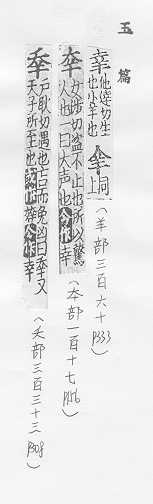 玉篇
羍 他達切生也小羊也 仝 同上 (羊部三百六十 p333)
㚔 女涉切盜不止也所以驚人也一曰大声也今作幸 (㚔部一百十七 p116)
㚔 戶耿切遇也吉而免凶曰㚔又天子所至也或作今作幸 (夭部三百三十三 p308)